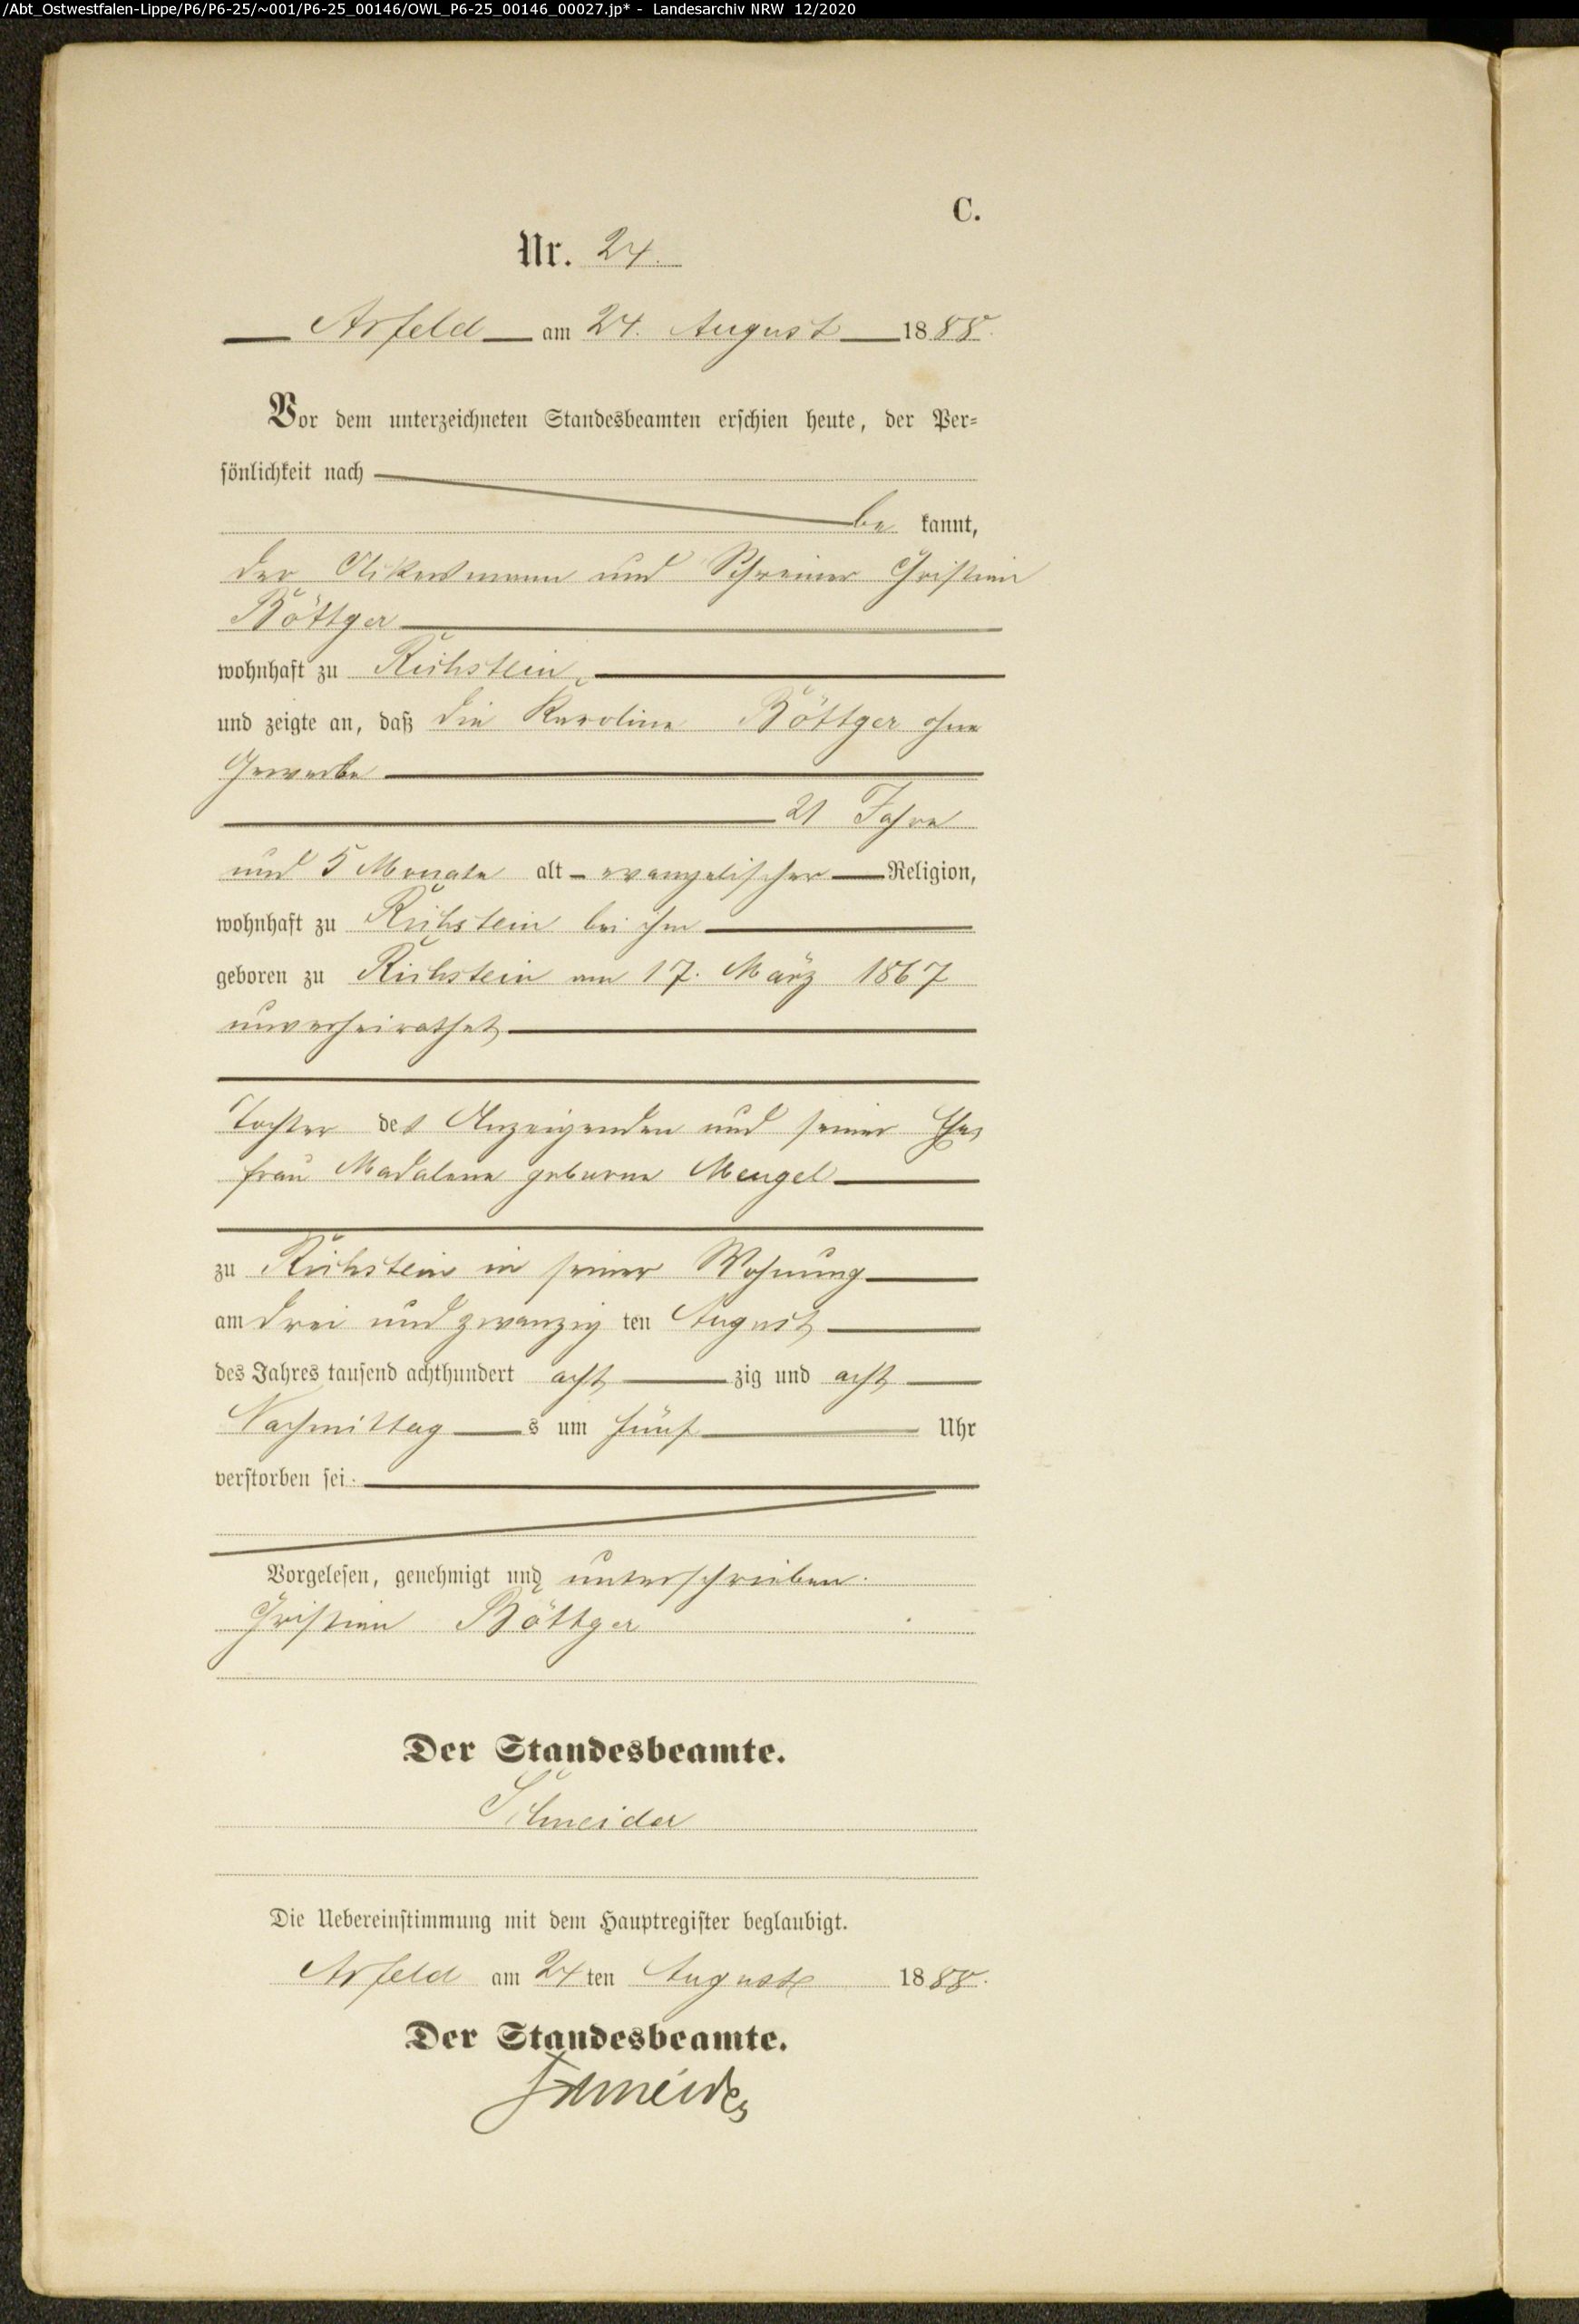 /Abt_Ostwestfalen-Lippe/P6/P6-25/~001/P6-25_00146/OWL_P6-25_00146_00027.jp* - Landesarchiv NRW 12/2020
C.
Nr. 24.
Arfeld am 24. August 1888.
Vor dem unterzeichneten Standesbeamten erschien heute, der Per-
sönlichkeit nach
be kannt,
der Ackersmann und Schreiner Christian
Böttger
wohnhaft zu Richstein,
und zeigte an, daß die Karoline Böttger ohne
Gewerbe
21 Jahre
und 5 Monate alt evangelischer Religion,
wohnhaft zu Richstein bei ihm
geboren zu Richstein am 17. März 1867
unverheirathet,
Tochter des Anzeigenden und seiner Ehe-
frau Madalene geborne Mengel
zu Richstein in seiner Wohnung
am drei und zwanzig ten August
des Jahres tausend achthundert acht zig und acht
Nachmittag s um fünf Uhr
verstorben sei.
Vorgelesen, genehmigt und unterschrieben.
Christian Böttger
Der Standesbeamte.
Schneider
Die Uebereinstimmung mit dem Hauptregister beglaubigt.
Arfeld am 24 ten August 1888.
Der Standesbeamte.
Schneider